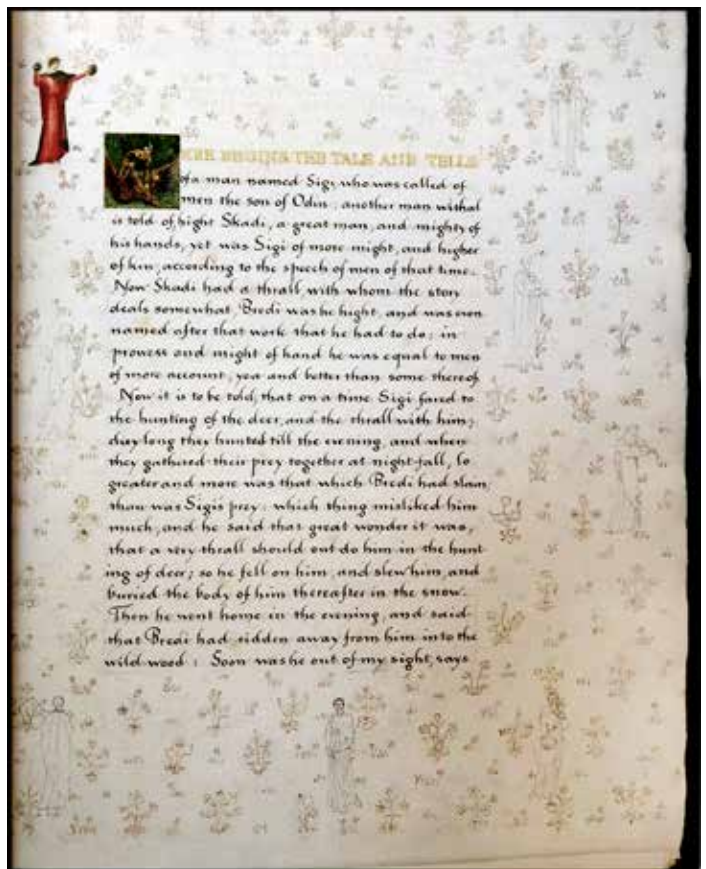 HERE BEGINS THE TALE AND TELLS
of a man named Sigi, who was called of
men the son of Odin; another man withal
is told of hight Skadi, a great man, and mighty of
his hands, yet was Sigi of more might, and higher
of kin, according to the speech of men of that time.
Now Skadi had a thrall, with whom the story
deals somewhat Bredi was he hight, and was even
named after that work that he had to do; in
prowess and might of hand he was equal to men
of more account, yea and better than some thereof.
Now it is to be told, that on a time Sigi fared to
the hunting of the deer, and the thrall with him;
day long they hunted till the evening, and when
they gathered their prey together at night-fall, lo
greater and more was that which Bredi had slain
than was Sigi's prey: which thing misliked him
much, and he said that great wonder it was,
that a very thrall should out do him in the hunt
ing of deer; so he fell on him, and slew him, and
buried the body of him thereafter in the snow.
Then he went home in the evening, and said
that Bredi had ridden away from him into the
wild wood: Soon was he out of my sight, says